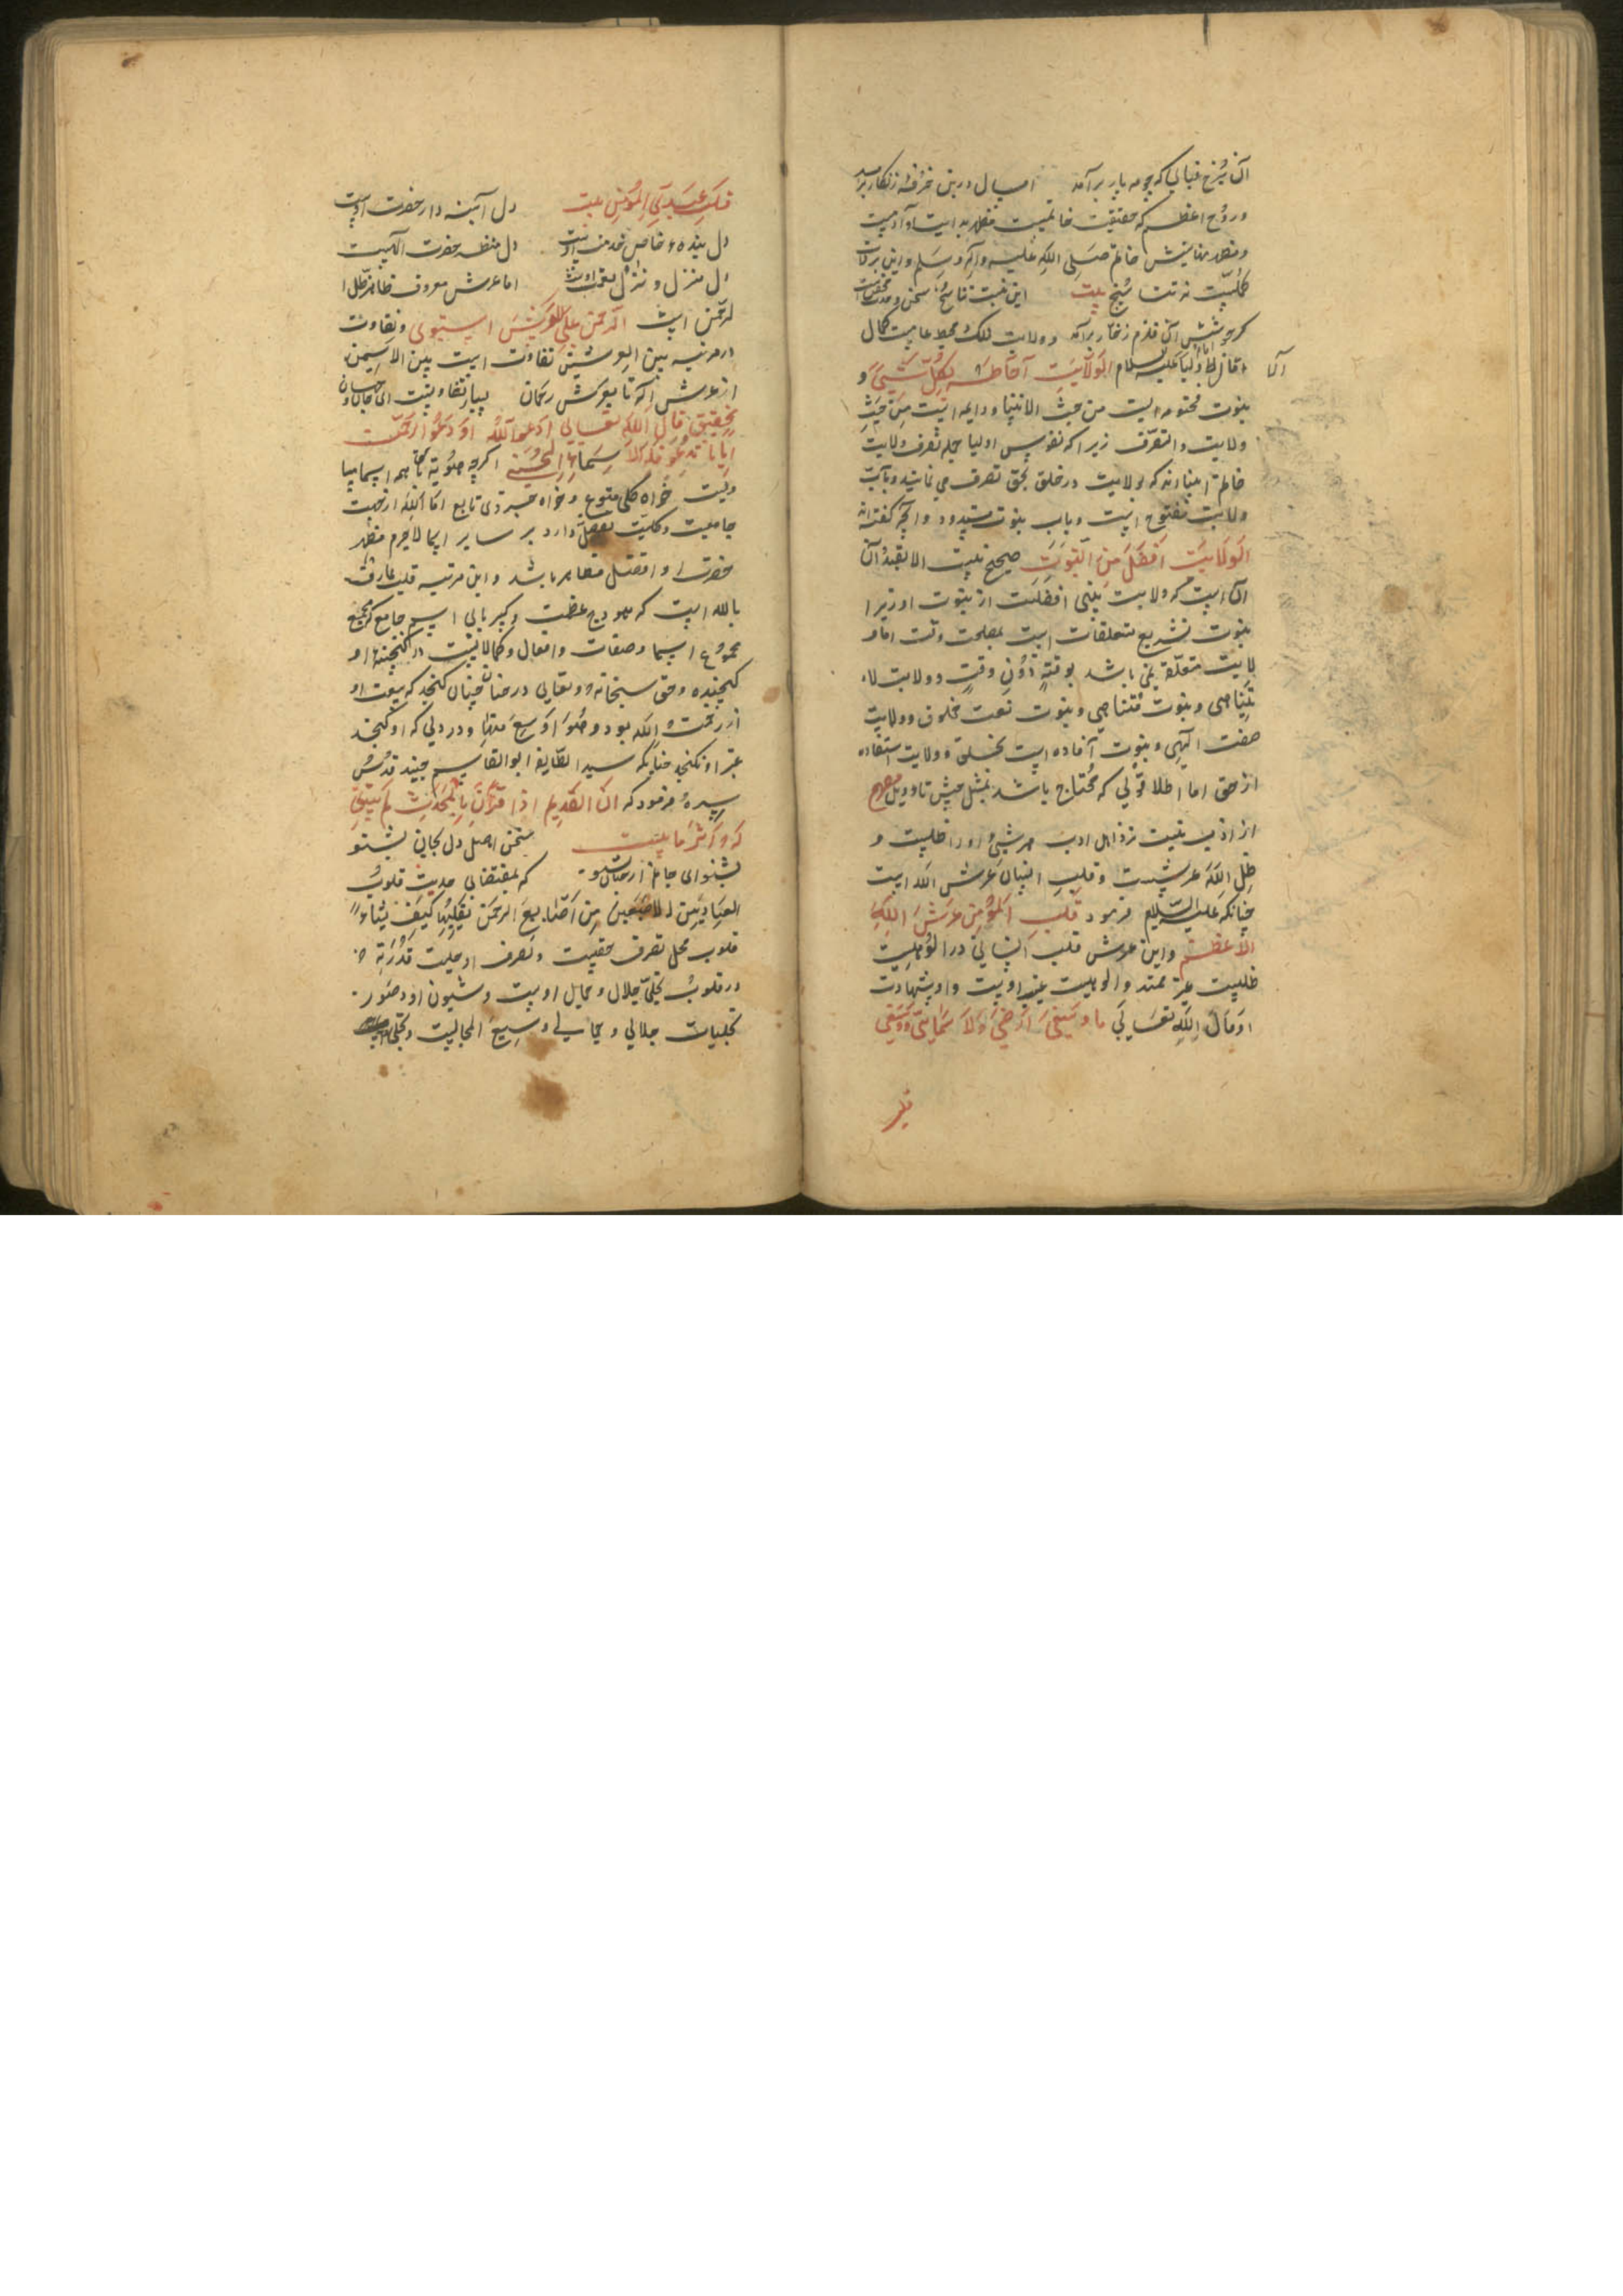 آن شرخ قبایی که چو مه پار برآمد امسال درین خرقه زنکار برآمد
و روح اعظم که حقیقت خاتمیت مظهر بدایت آدمیت
و مظهر نهایتش خاتم صلی الله علیه وآله وسلم و این برکات
کلیت نه تناسخ بیت این نیست تناسخ سخن وحدت محض است
کز جوشش آن قلزم زخار برآمد و ولایت فلک محیط عامیت کمال
قال علیه السلام الولایت آحاطه بکل شئ و
الا
نبوت مختومه ایست من حیث الانتها و دایمه ایست من حیث
ولایت والتصرف زیرا که نفوس اولیا جمله تصرف ولایت
خاتم انبیااند که بولایت در خلق بحق تصرف می نمایند و باب
ولایت مفتوح است و باب نبوت مسدود و آنچه گفته اند
الولایت افضل من النبوت صحیح نیست الا بقید آن
آن است که ولایت نبی افضلست از نبوت او زیرا
نبوت تشریع متعلقات است بمصلحت وقت اما و
لایت متعلق نمی باشد بوقتٍ دون وقتٍ و ولایت لا
یتناهی و نبوت متناهی و نبوت نعت مخلوق و ولایت
صفت آلهی و نبوت آفاده است بخلق و ولایت استفاده
از حق اما اطلاق قولی که محتاج باشد بمثل حیث تاویل
از ادب نیست نزد اهل ادب هر شئ را ظلیست و
ظل الله عرشست و قلب انسان عرش الله است
چنانکه علیه السلام فرمود قلب المؤمن عرش الله
الاعظم و این عرش قلب انسانی در الوهیت
ظلیست غیر ممتد و الوهیت غیب اوست و او شهادت
او قال الله تعالی ما وسعنی ارضی ولا سمایی و وسعنی
قلب
قلب عبدی المؤمن بیت دل آینه دار حضرت اوست
دل بنده خاص خدمت اوست دل منظر حضرت الهیست
دل منزل و تنزل اوست اما عرش معروف ظاهر ظل ا
لرحمن است الرحمن علی العرش استوی و تفاوت
در مرتبه بین العرشین تفاوت است بین الاسمین
از عرش اله تا بعرش رحمان بسیار تفاوتست ای جان
بتحقیق قال الله تعالی ادعوا الله او دعوا الرحمن
ایاما تدعو فله الاسماء الحسنی اگرچه هویت با همه اسما
ولیت خواه کلی متبوع و خواه جزوی تابع اما الله از جهت
جامعیت و کلیت فضل دارد بر سایر اسما لاجرم مظهر
حضرت او افضل مظاهر باشد و این مرتبه قلب عارف
بالله است که هودج عظمت و کبریایی اسم جامع که جمیع
مجموع اسما و صفات و افعال و کمالاتست در کنجینه او
کنجیده و حق سبحانه و تعالی در چنان کنجد که وسعت او
از رحمت الله بود و هو اوسع منها و در دلی که او کنجد
غیر او نکنجد چنانکه سید الطایفه ابوالقاسم جنید قدس
سره فرمود که ان القدیم اذا قرن بالمحدث لم یبق
له اثر ما بیت سخن اهل دل بجان بشنو
بشنو ای جان از جنان بشنو که بمقتضای حدیث قلوب
العباد بین الاصبعین من اصابع الرحمن یقلبها کیف یشاء
قلوب محل تصرف حقست و تصرف او بحیثیت قدرته
در قلوب تجلی جلال و جمال اوست و شیون او و صور
تجلیات جلالی و جمالی وسیع المجالیست